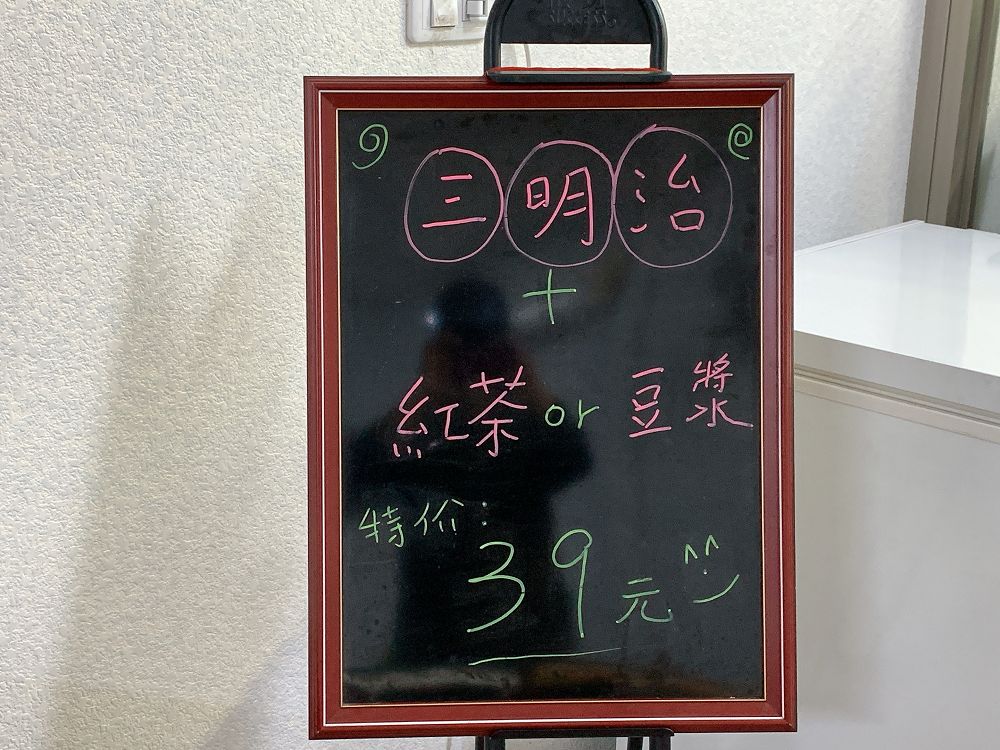 三明治
+
紅茶 or 豆漿
特价:
39元